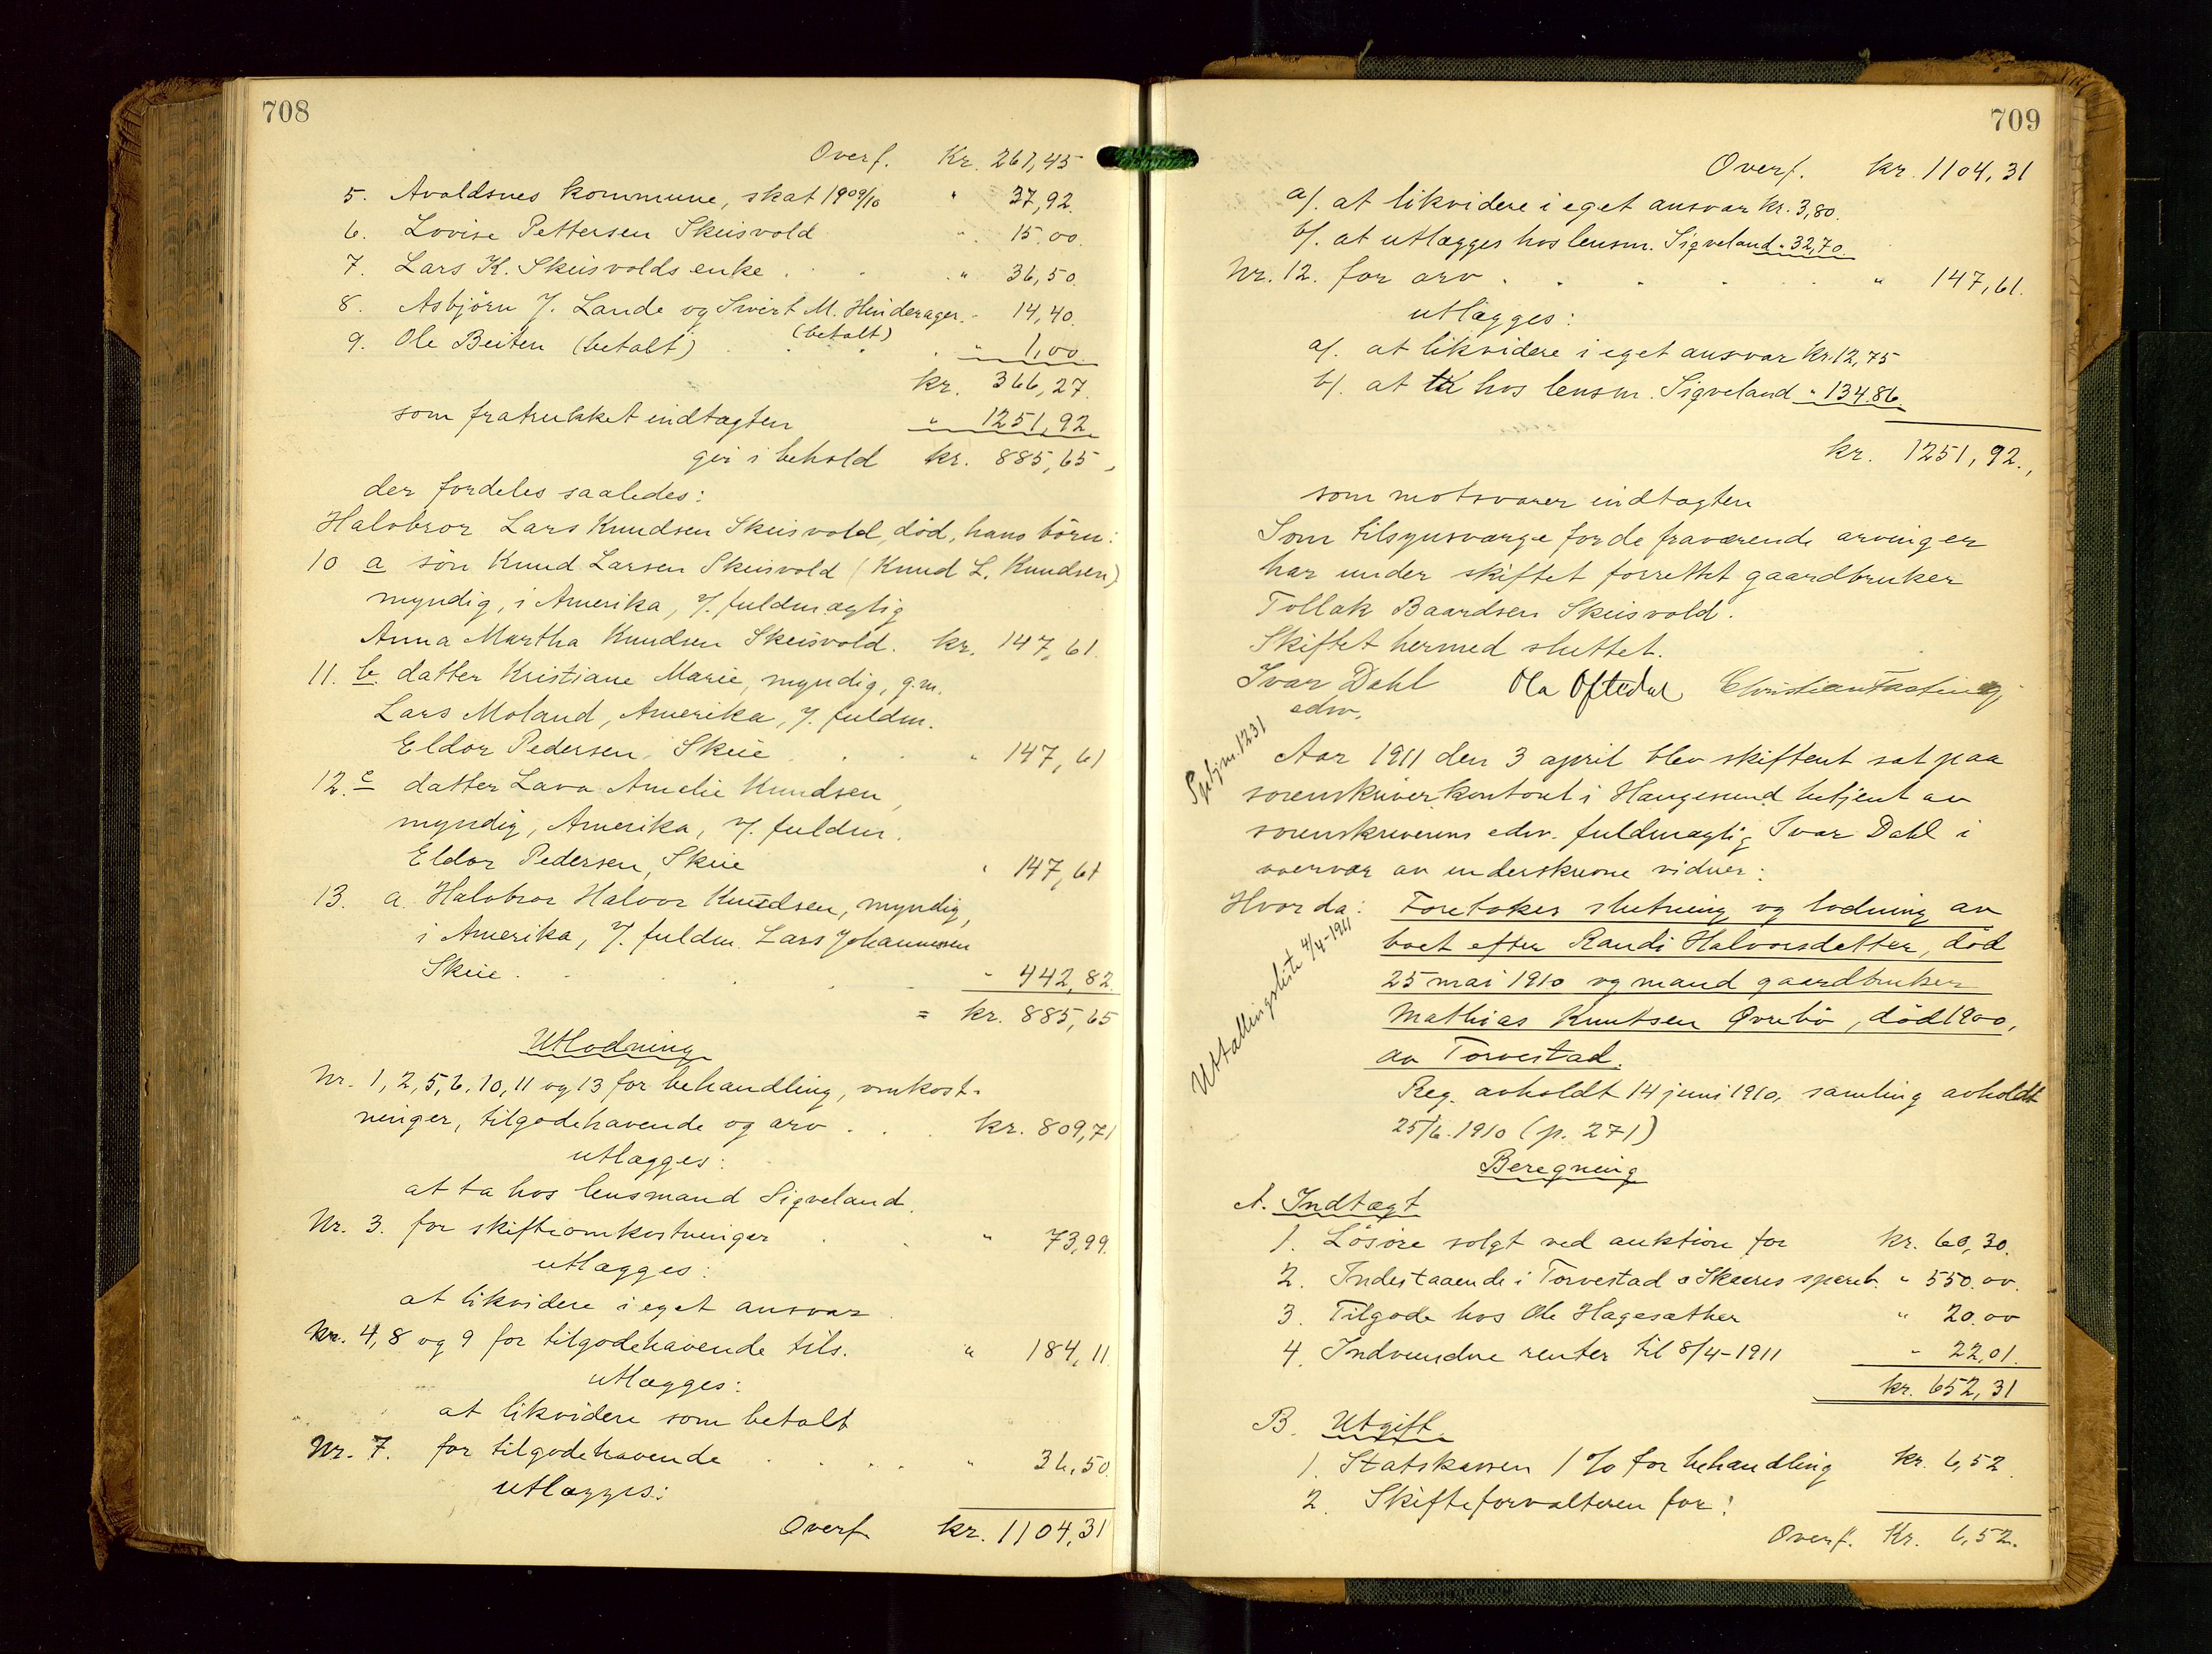 708
Overf. Kr. 261,45
5. Avaldsnes kommune, skat 1909/10 " 37,92.
6. Lovise Pettersen Skeisvold " 15.00.
7. Lars K. Skeisvolds enke . . . " 36,50.
8. Asbjörn J. Lande og Sivert M. Hinderager. " 14,40.
(betalt)
9. Ole Beiten (betalt) . . . " 1,00.
kr. 366,27.
som fratrukket indtægten " 1251,92
gir i behold kr. 885,65,
der fordeles saaledes:
Halvbror Lars Knudsen Skeisvold, död, hans börn:
10 a sön Knud Larsen Skeisvold (Knud L. Knudsen)
myndig, i Amerika, v. fuldmægtig
Anna Martha Knudsen Skeisvold. kr. 147,61.
11. b. datter Kristiane Marie, myndig, g.m.
Lars Moland, Amerika, v. fuldm.
Eldor Pedersen, Skeie . . . " 147,61
12. c datter Lava Amelie Knudsen,
myndig, Amerika, v. fuldm.
Eldor Pedersen, Skeie " 147,61
13. a. Halvbror Halvor Knudsen, myndig,
i Amerika, v. fuldm. Lars Johannessen
Skeie . . . . " 442,82.
= kr. 885,65
Utlodning
Nr. 1, 2, 5, 6, 10, 11 og 13 for behandling, omkost-
ninger, tilgodehavende og arv . . . kr. 809,71
utlægges:
at ta hos lensmand Sigveland.
Nr. 3. for skifteomkostninger . . " 73,99.
utlægges:
at likvidere i eget ansvar.
Nr. 4, 8 og 9 for tilgodehavende tils. " 184,11.
utlægges:
at likvidere som betalt
Nr. 7. for tilgodehavende . . . . " 36,50.
utlægges:
Overf. kr. 1104,31
709
Overf. kr. 1104,31
a/. at likvidere i eget ansvar kr. 3,80.
b/. at utlægges hos lensm. Sigveland " 32,70.
Nr. 12. for arv . . . . . " 147,61.
utlægges:
a/. at likvidere i eget ansvar kr. 12,75
b/. at ta hos lensm. Sigveland " 134.86.
kr. 1251,92.,
som motsvarer indtægten
Som tilsynsværge for de fraværende arvinger
har under skiftet forrettet gaardbruker
Tollak Baardsen Skeisvold.
Skiftet hermed sluttet.
Ivar Dahl Ola Oftedal Christian Fasting
edsv.
Aar 1911 den 3 april blev skifteret sat paa
sorenskriverkontoret i Haugesund betjent av
sorenskriverens edsv. fuldmægtig Ivar Dahl i
overvær av underskrevne vidner:
1231
Utbetallingsliste 4/4-1911
Hvorda: Foretokes slutning og lodning av
boet efter Randi Halvorsdatter, död
25 mai 1910 og mand gaardbruker
Mathias Knutsen Øvrebö, död 1900,
av Torvestad.
Reg. avholdt 14 juni 1910, samling avholdt
25/6. 1910 (p. 271)
Beregning
A. Indtægt
1. Lösöre solgt ved auktion for kr. 60,30.
2. Indestaaende i Torvestad o Skaares spareb. " 550.00.
3. Tilgode hos Ole Hagesæther " 20.00
4. Indvundne renter til 8/4-1911 " 22,01.
kr. 652,31
B. Utgift.
1. Statskassen 1 % for behandling kr. 6,52.
2. Skifteforvalteren for:
Overf. Kr. 6,52.